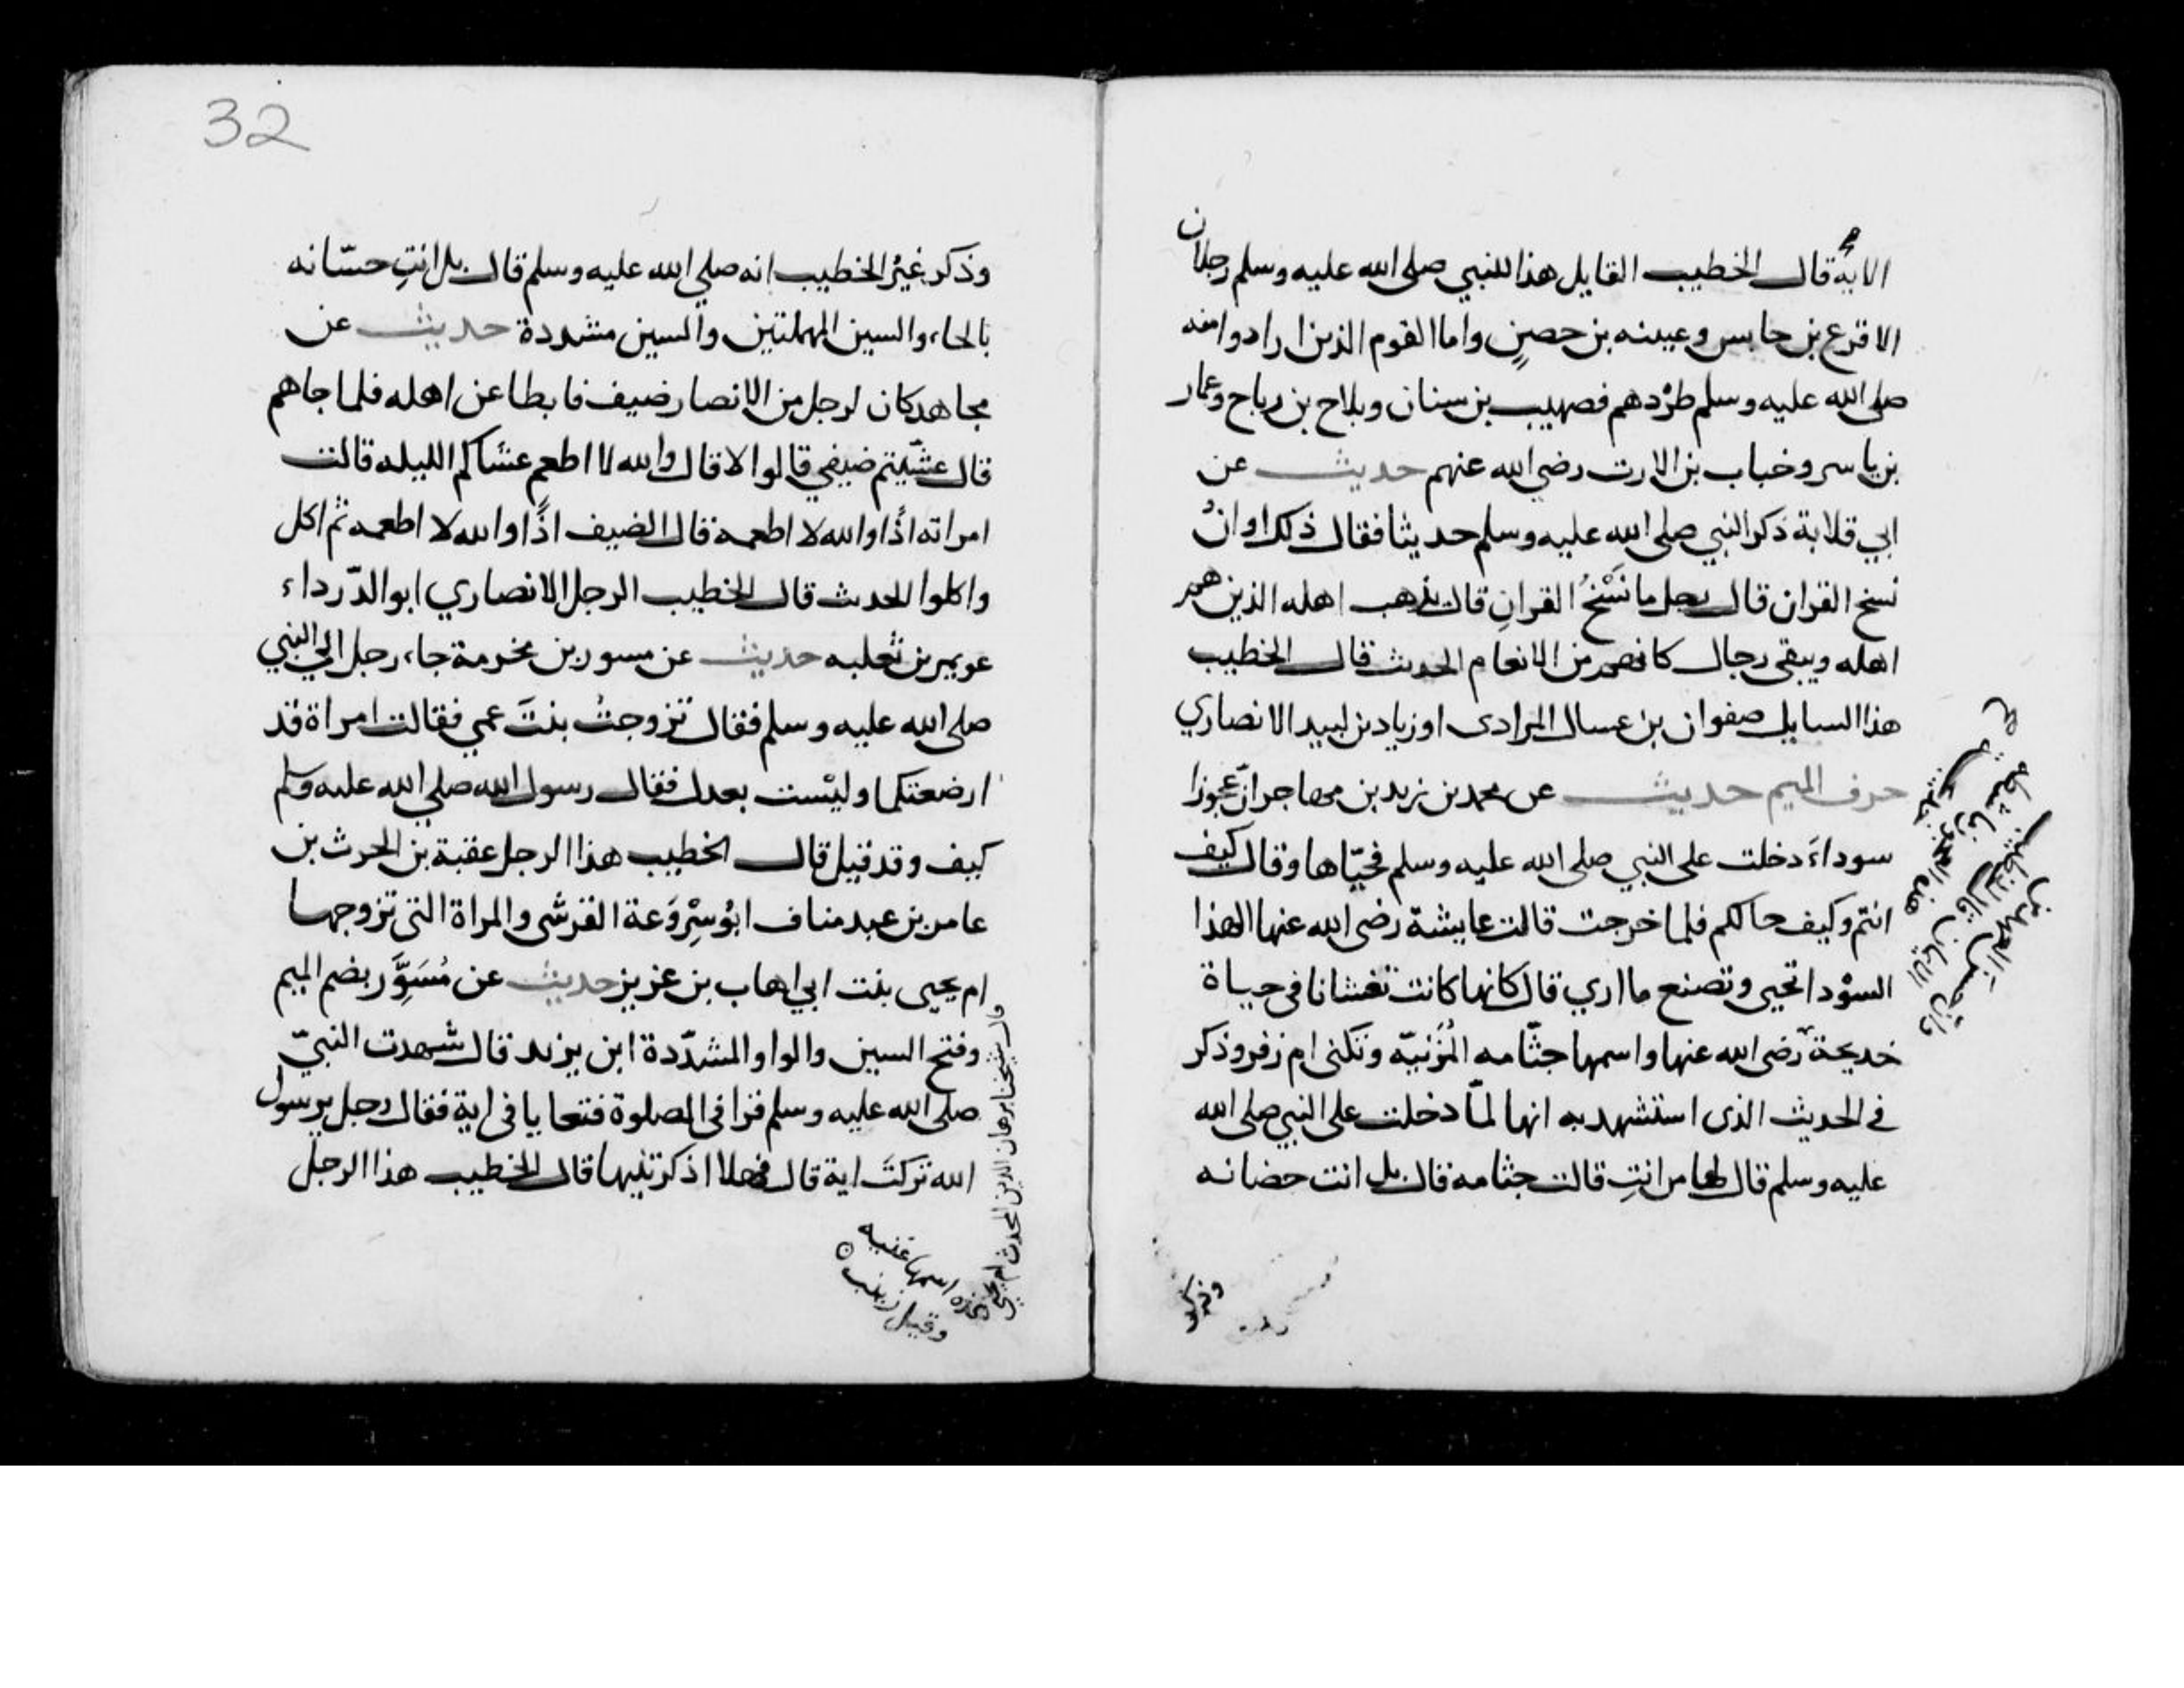 الاية قال الخطيب القايل هذا للنبي صلى الله عليه وسلم رجلان
الاقرع بن حابس وعيينه بن حصين واما القوم الذين ارادوا منه
صلى الله عليه وسلم طردهم فصهيب بن سنان وبلاح بن رباح وعمار
بن ياسر وخباب بن الارت رضي الله عنهم حديث عن
ابي قلابة ذكر النبي صلى الله عليه وسلم حديثا فقال ذلك اوانُ
نسخ القران قال رجل ما نَسْخُ القرانِ قال يذهب اهله الذين هم
اهله ويبقى رجال كانهم من الانعام الحدث قال الخطيب
هذا السايل صفوان بن عسال المرادى او زياد بن لبيد الانصاري
حرف الميم حديث عن محمد بن زيد بن مهاجر انّ عجوزا
سوداءَ دخلت على النبي صلى الله عليه وسلم فحيّاها وقال كيف
انتم وكيف حالكم فلما خرجت قالت عايشة رضى الله عنها الهذا
السوْدا تحيى وتصنع ما اري قال كانها كانت تغشانا في حياة
خديجة رضى الله عنها واسمها جثّامه المُزَنيّه وتكنى ام زفر وذكر
في الحديث الذى استشهد به انها لمّا دخلت على النبي صلى الله
عليه وسلم قال لها من انتِ قالت جثامه قال بل انت حضانه
وذكر
32
وذكر غيرُ الخطيب انه صلي الله عليه وسلم قال بل انتِ حسّانه
بالحاء والسين المهملتين والسين مشددة حديث عن
مجاهد كان لرجل من الانصار ضيف فابطا عن اهله فلما جاهم
قال عشّيتم ضيفي قالوا لا قال والله لا اطعم عشاكم الليله قالت
امراته اذًا والله لا اطعمه قال الضيف اذًا والله لا اطعمه ثم اكل
واكلوا الحدث قال الخطيب الرجل الانصاري ابو الدّرداء
عويمر بن ثعلبه حديث عن مسور بن مخرمة جاء رجل الي النبي
صلى الله عليه وسلم فقال تزوجتُ بنتَ عمي فقالت امراة قد
ارضعتكما وليْست بعدل فقال رسول الله صلي الله عليه وسلم
كيف وقد قيل قال الخطيب هذا الرجل عقبة بن الحرث بن
عامر بن عبد مناف ابوُ سِرْوَعة القرشى والمراة التى تزوجها
ام يحيى بنت ابي اهاب بن عزيز حديث عن مُسَوَّر بضم الميم
وفتح السين والواو المشدّدة ابن يزيد قال شهدت النبيّ
صلى الله عليه وسلم قرا في الصلوة فتعايا في اية فقال رجل يرسول
الله تركتَ اية قال فهلا اذكرتنيها قال الخطيب هذا الرجل
قال شيخنا برهان الدين المحدث ام يحيي
هذه اسمها غنيه
وقيل زينب